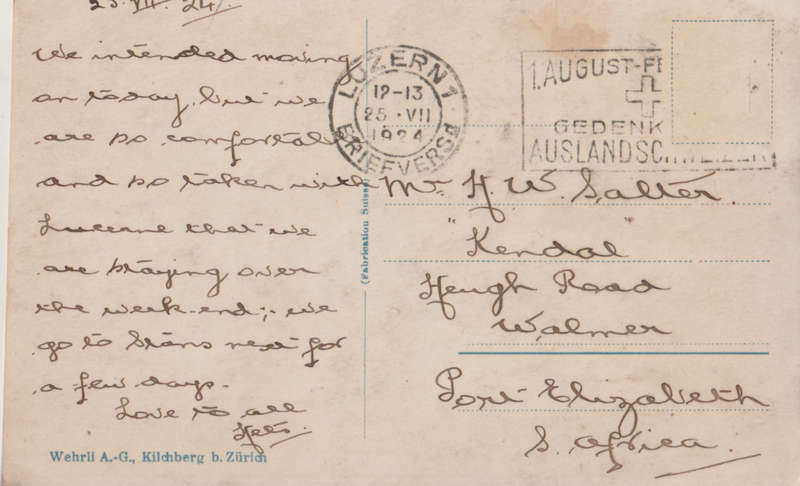 25.VII.24
We intended moving
on today, but we
are so comfortable
and so taken with
Lucerne that we
are staying over
the week-end;- we
go to Stans next for
a few days.
Love to all
Wehrli A.-G., Kilchberg b. Zürich
(Fabrication Suisse)
LUZERN 1
12-13
25.VII
1924
BRIEFVERSd
1.AUGUST-FE
GEDENK
AUSLANDSCHWEIZER
Mr. H. W. Salter.
"Kendal"
Heugh Road
Walmer
Port Elizabeth
S. Africa.